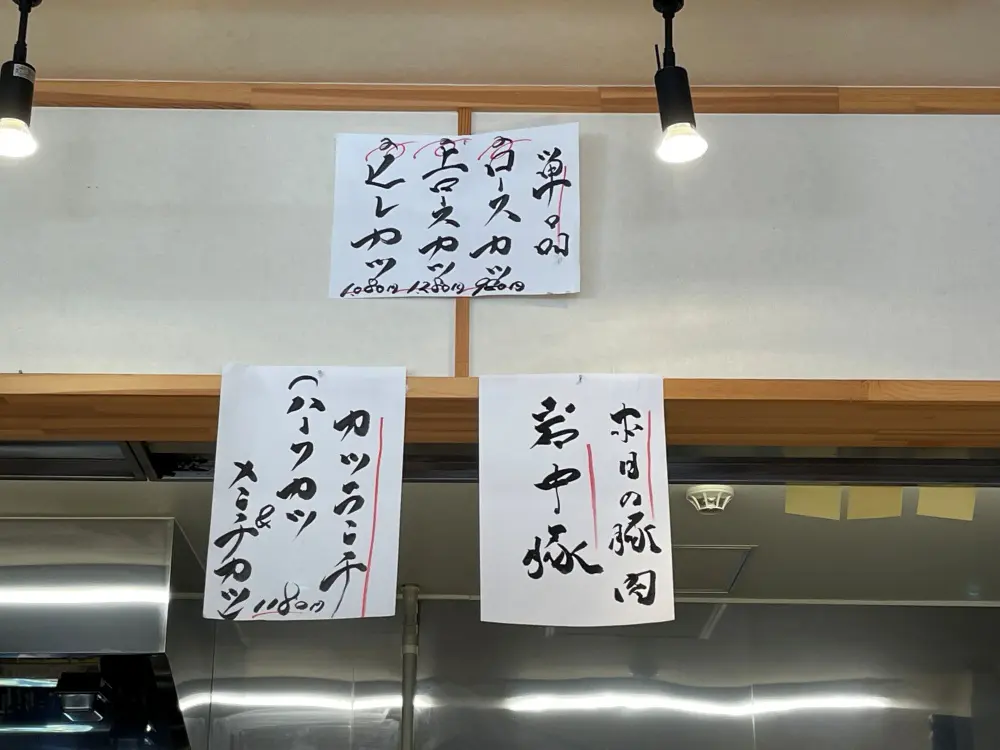 単品
ロースカツ 980円
上ロースカツ 1,280円
ヒレカツ 1,080円
カツランチ
(ハーフカツ
&
メンチカツ)
1180円
本日の豚肉
岩中豚